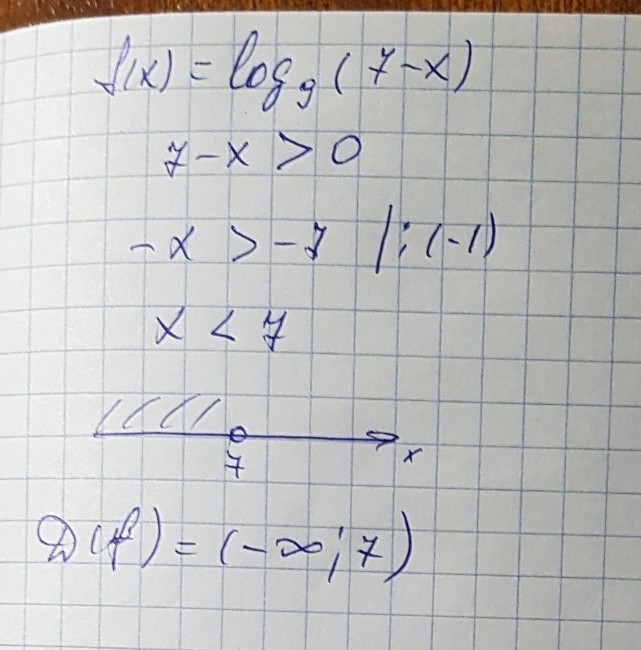 f(x) = log₉(7-x)
7-x > 0
-x > -7 |:(-1)
x < 7
7 x
D(f) = (-∞; 7)